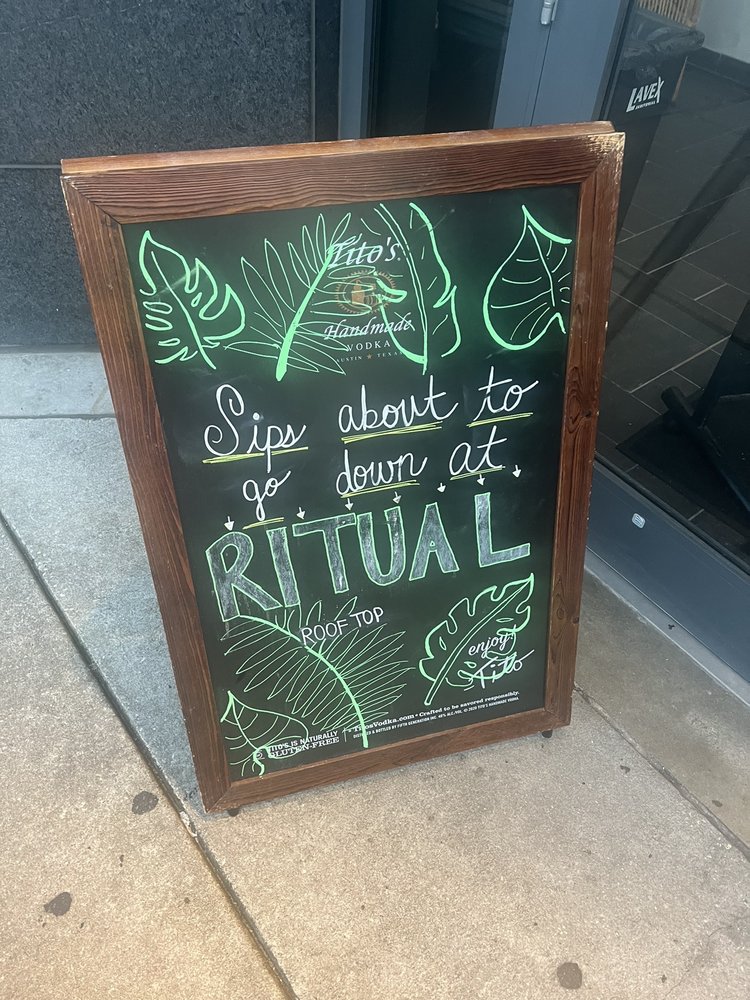 LAVEX
Tito's
Handmade
VODKA
AUSTIN ★ TEXAS
Sips about to
go down at
RITUAL
ROOF TOP
enjoy!
Tito
TITO'S IS NATURALLY
GLUTEN-FREE
TitosVodka.com • Crafted to be savored responsibly.
DISTILLED & BOTTLED BY FIFTH GENERATION INC. 40% ALC/VOL. © 2020 TITO'S HANDMADE VODKA